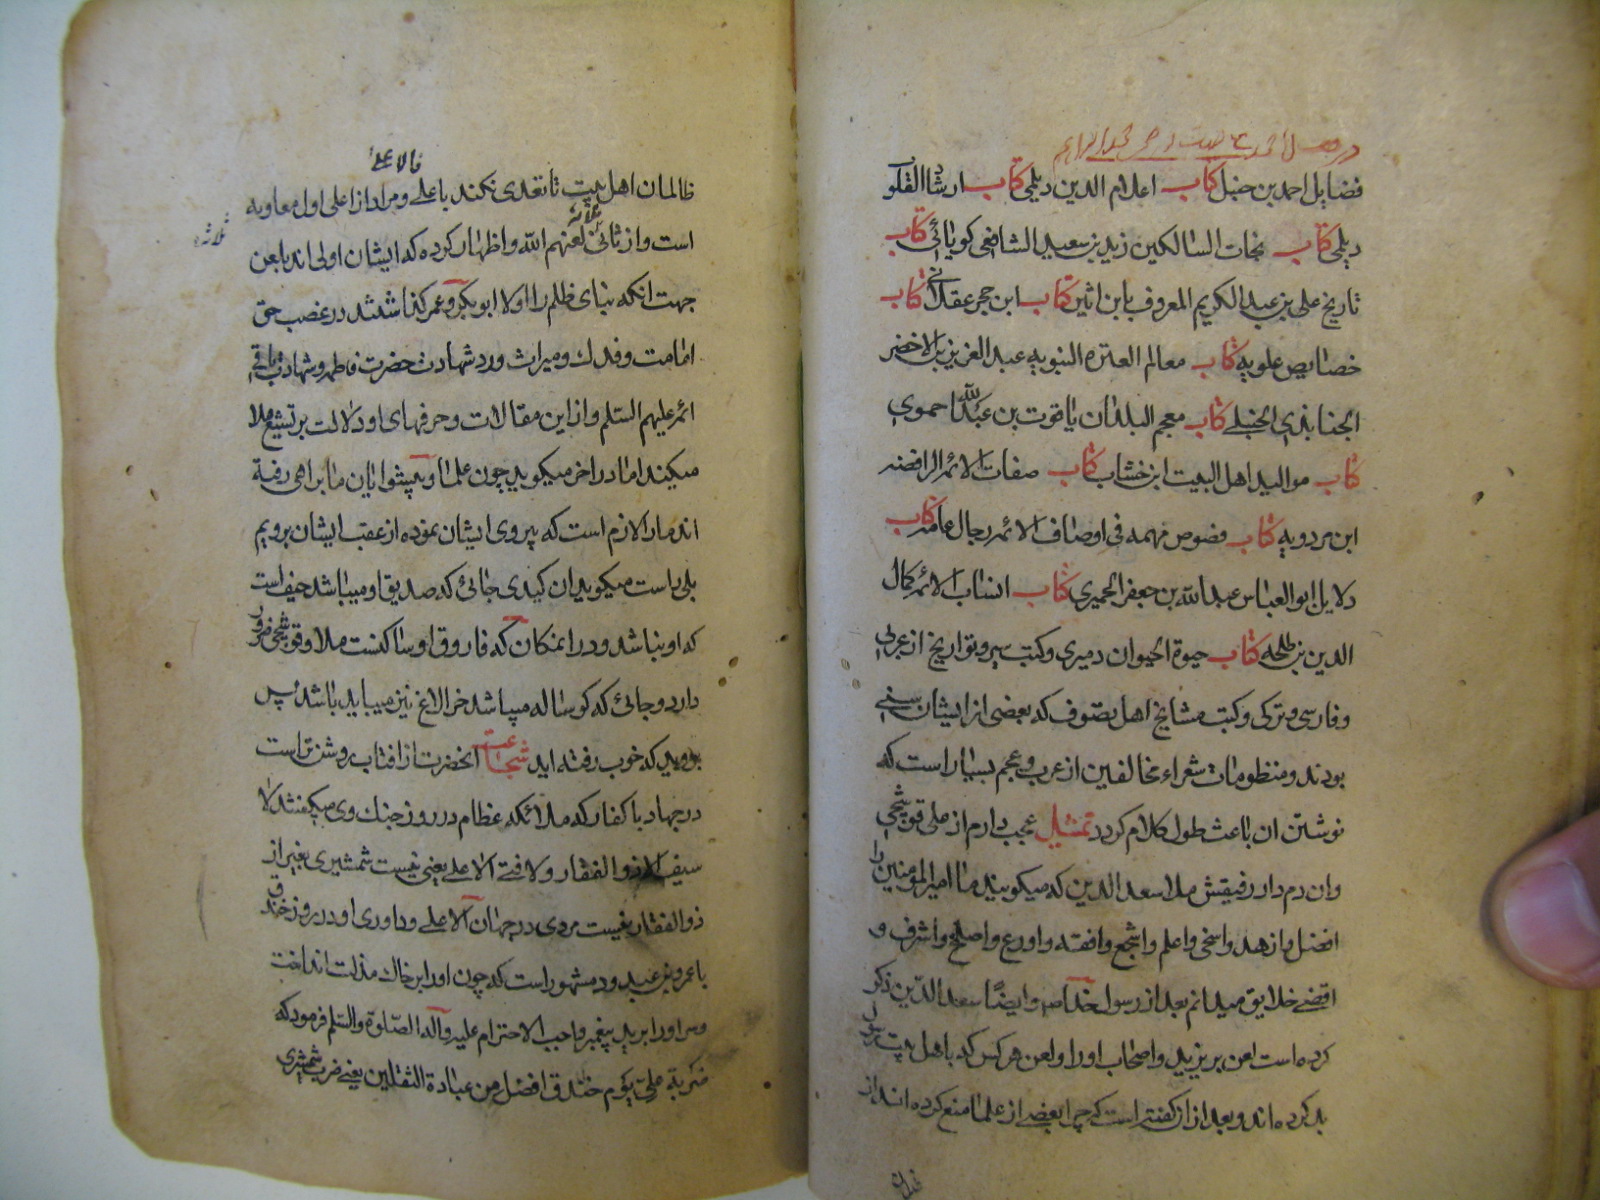 فضایل احمد بن حنبل کتاب اعلام الدین دیلمی کتاب ارشاد القلوب
دیلمی کتاب نجات السالکین زید بن سعید الشافعی کتاب
تاریخ علی بن عبد الکریم المعروف بابن اثیر کتاب ابن حجر عقلانی کتاب
خصایص علویه کتاب معالم العتره النبویه عبد العزیز بن الاخضر
الجنابذی الحنبلی کتاب معجم البلدان یاقوت بن عبد الله حموی
کتاب موالید اهل البیت ابن خشاب کتاب صفات الائمه الرافضه
ابن مردویه کتاب فصوص مهمه فی اوصاف الائمه رجال عامه کتاب
دلایل ابو العباس عبد الله بن جعفر الحمیری کتاب انساب الائمه کمال
الدین بن طلحه کتاب حیوة الحیوان دمیری و کتب سیر و تواریخ از عربی
و فارسی و ترکی و کتب مشایخ اهل تصوف که بعضی از ایشان سنی
بودند و منظومات شعراء مخالفین از عرب و عجم بسیار است که
نوشتن ان باعث طول کلام کردد تمثیل عجب دارم از ملی قوشجی
وان دم دار رفیقش ملا سعد الدین که میکویند ما امیر المومنین را
افضل و ازهد و اسخی و اعلم و اشجع و افقه و اورع و اصلح و اشرف و
اقضی خلایق میدانم بعد از رسول خدا ص و ایضا سعد الدین ذکر
کرده است لعن بر یزید و اصحاب او را و لعن هر کس که باهل بیت رسول
بد کرده اند و بعد از ان کفته است که چرا بعضی از علما منع کرده اند از
فالاعلی
ظالمان اهل بیت تا تعدی نکند باعلی و مراد از اعلی اول معاویه
است و از ثانی ثلاثه لعنهم الله و اظهار کرده که ایشان اولی اند بلعن
ثلاثه
جهت انکه بنای ظلم را اولا ابو بکر و عمر کذاشتند در غصب حق
امامت و فدک و میراث و رد شهادت حضرت فاطمه و شهادت باقی
ائمه علیهم السلم و از این مقالات و حرفهای او دلالت بر تشیع ملا
میکند اما در اخر میکوید چون علما و پیشوایان ما براهی رفته
اند ما را لازم است که پیروی ایشان نموده از عقب ایشان برویم
بلی راست میکوید ان کیدی جائی که صدیق او میباشد حیف است
که او نباشد و در انمکان که فاروق او ساکنست ملا قوشجی ضرور
دارد و جائی که کوساله میباشد خر الاغ نیز میباید باشد پس
بروید که خوب رفته اید شجاعت انحضرت از افتاب روشن تر است
در جهاد با کفار که ملائکه عظام در روز جنک وی میکفتند لا
سیف الا ذو الفقار و لا فتی الا علی یعنی نیست شمشیری بغیر از
ذو الفقار نیست مردی در جهان الا علی و داوری او در روز خندق
با عمرو بن عبد ود مشهور است که چون او را بر خاک مذلت انداخت
و سر او را برید پیغمبر واجب الاحترام علیه و آله الصلوة و السلم فرمود که
ضربة علی یوم خندق افضل من عبادة الثقلین یعنی ضرب شمشیری